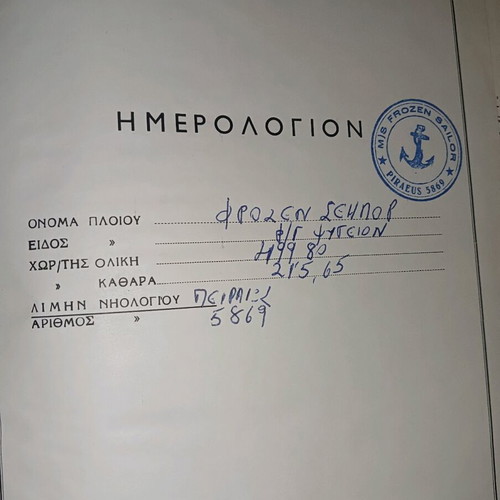 ΗΜΕΡΟΛΟΓΙΟΝ
M/S FROZEN SAILOR
PIRAEUS 5869
ΟΝΟΜΑ ΠΛΟΙΟΥ ΦΡΟΖΕΝ ΣΕΗΛΟΡ
ΕΙΔΟΣ » Φ/Γ ΨΥΓΕΙΟΝ
ΧΩΡ/ΤΗΣ ΟΛΙΚΗ 499,80
» ΚΑΘΑΡΑ 215,65
ΛΙΜΗΝ ΝΗΟΛΟΓΙΟΥ ΠΕΙΡΑΙΕΥΣ
ΑΡΙΘΜΟΣ » 5869